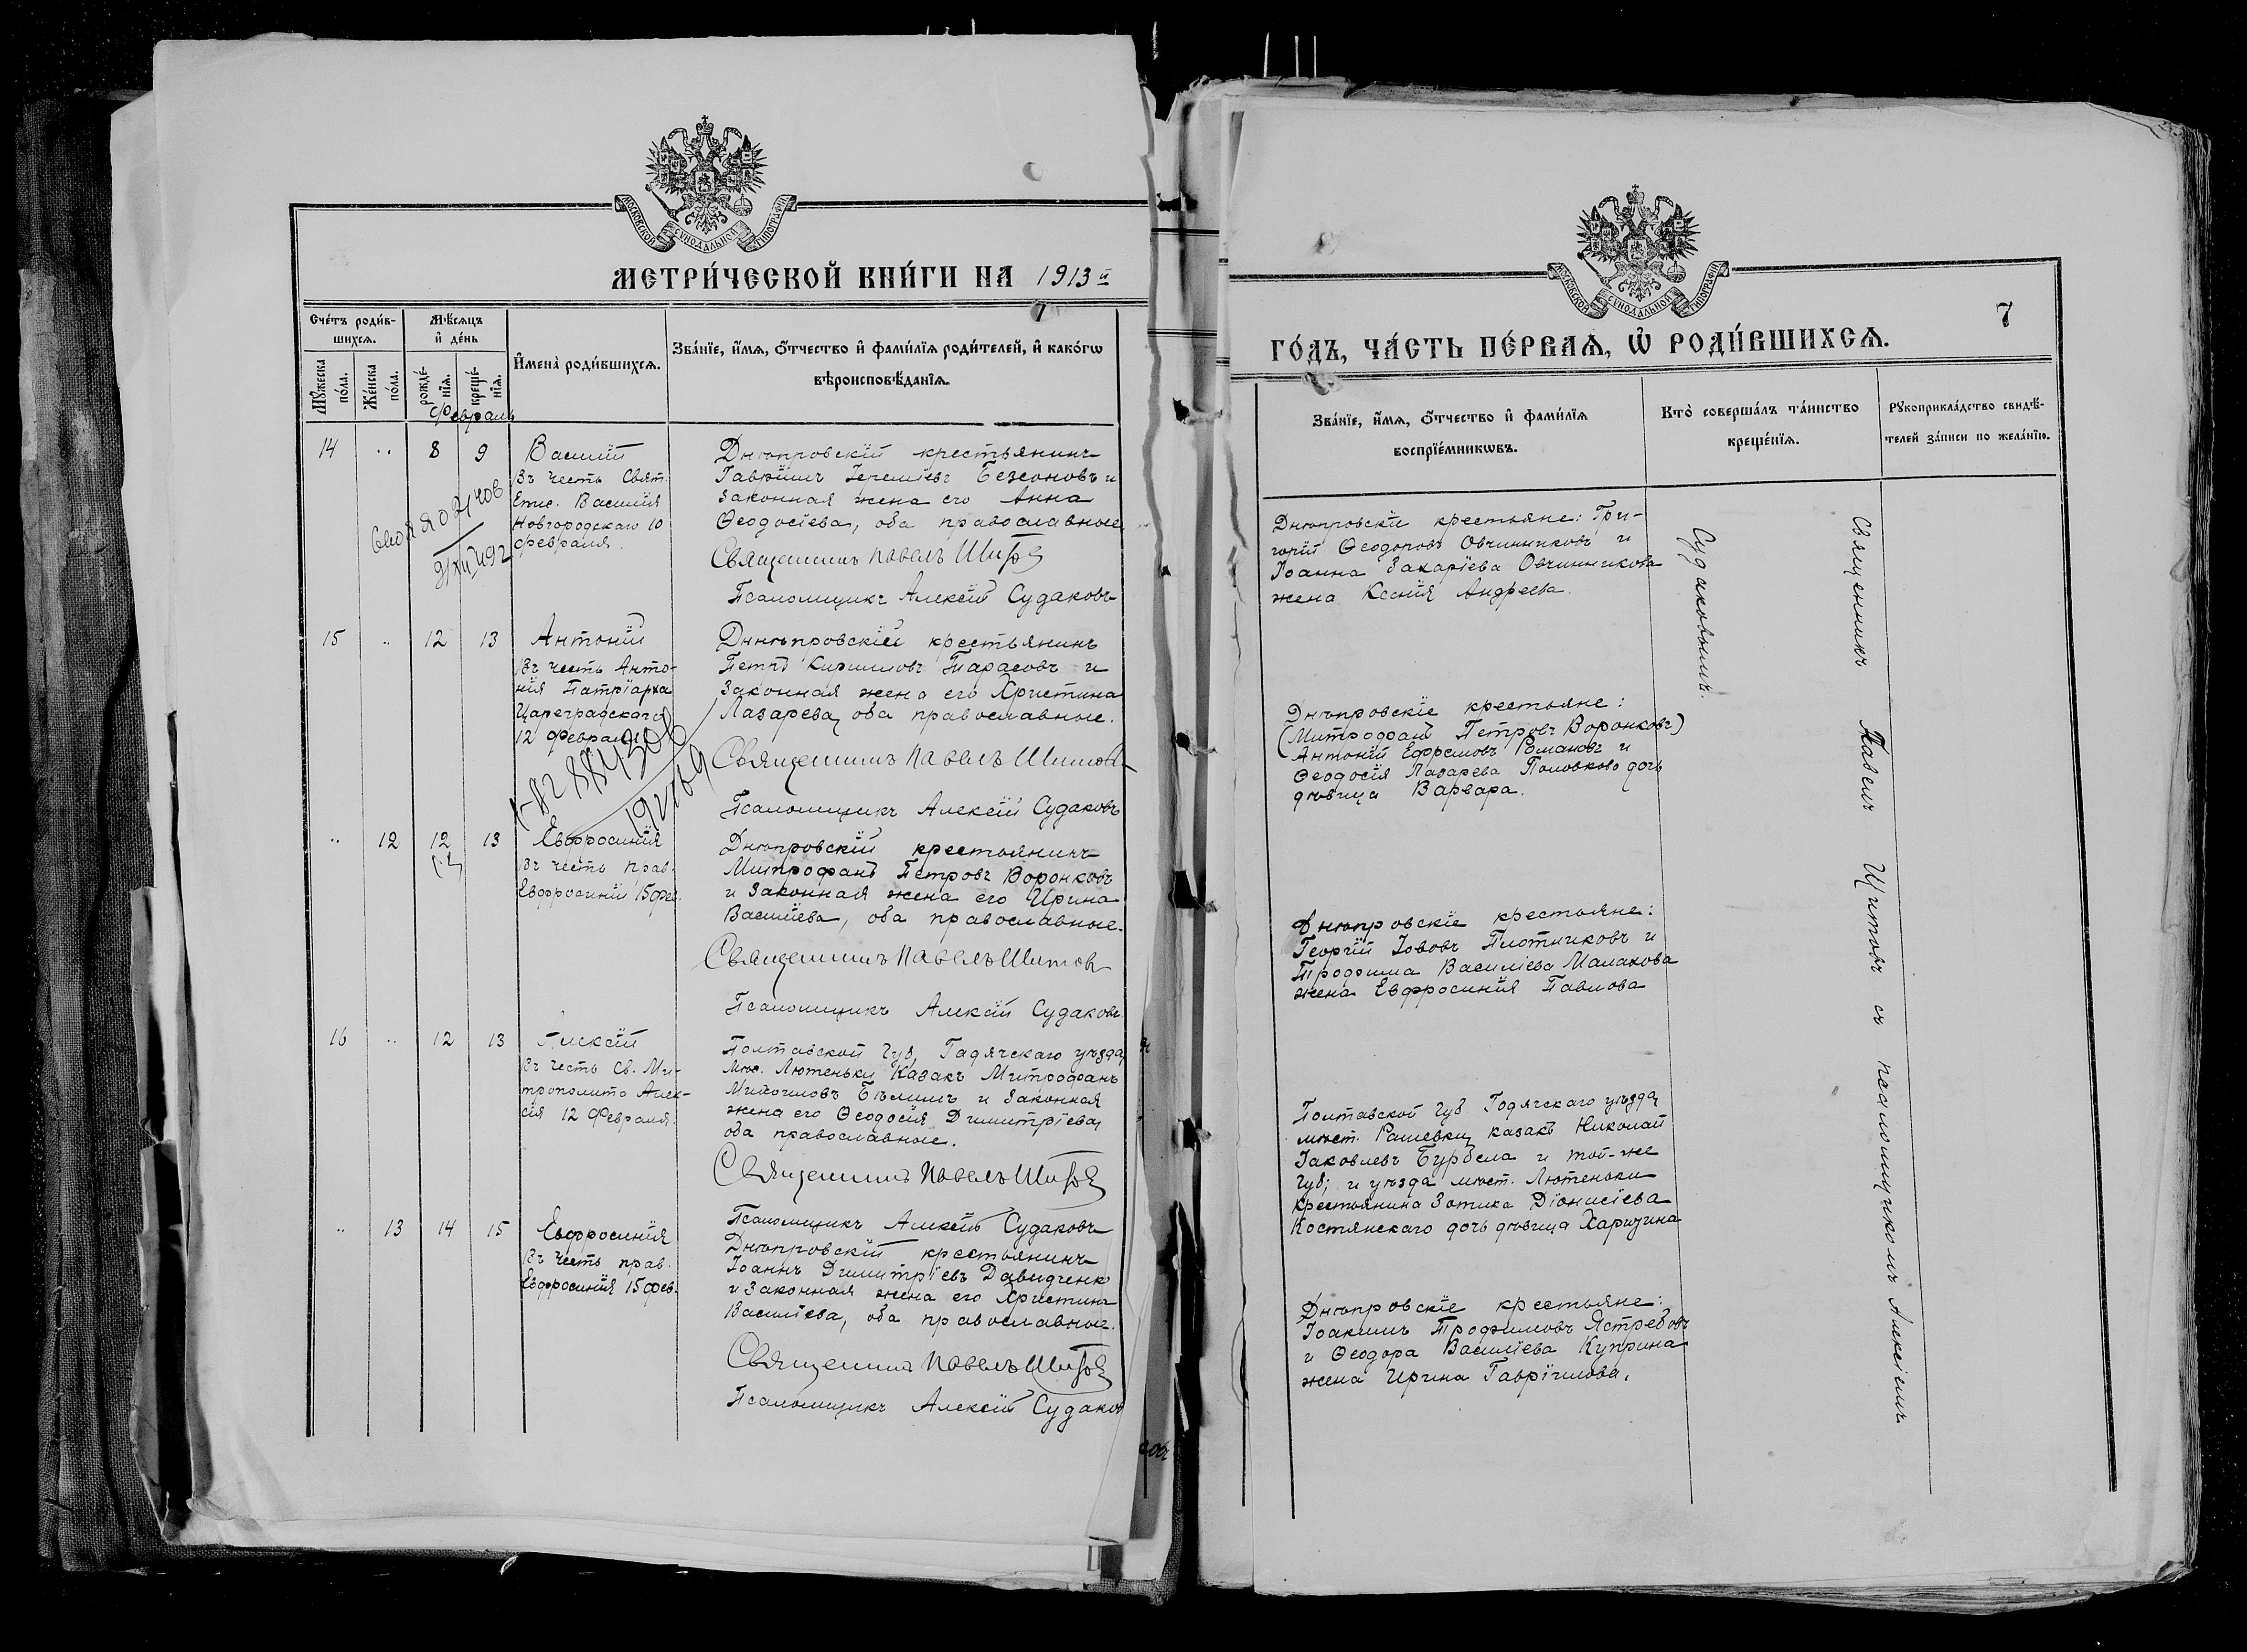 МОСКОВСКОЙ СѴНОДАЛЬНОЙ ТИПОГРАФІИ
МЕТРИ́ЧЕСКОЙ КНИ́ГИ НА 1913 й
Сче́тъ роди́в-
шихсѧ.
Мѣ́сѧцъ
и҆ де́нь
И҆мена̀ роди́вшихсѧ.
Зва́нїе, и҆́мѧ, ѻ҆́тчество и҆ фами́лїѧ роди́телей, и҆ како́гѡ
вѣроисповѣ́данїѧ.
Мꙋ́жеска
по́ла.
Же́нска
по́ла.
рожде́-
нїѧ.
креще́-
нїѧ.
Февраль
14 .. 8 9 Василій
Въ честь Свят.
Епис. Василія
Новгородскаго 10
февраля.
Днѣпровскій крестьянинъ
Гавріилъ Іереміевъ Безсоновъ и
законная жена его Анна
Ѳеодосіева, оба православные
Священникъ Павелъ Шитов
Псаломщикъ Алексій Судаковъ
15 .. 12 13 Антоній
Въ честь Анто-
нія Патріарха
Цареградскаго
12 Февраля
Днѣпровскій крестьянинъ
Петръ Кирилловъ Тарасовъ и
законная жена его Христина
Лазарева, оба православные.
Священникъ Павелъ Шитовъ
Псаломщикъ Алексій Судаковъ
.. 12 12 13 Евфросинія
Въ честь прав.
Евфросиніи 15 фев.
Днѣпровскій крестьянинъ
Митрофанъ Петровъ Воронковъ
и законная жена его Ирина
Василіева, оба православные.
Священникъ Павелъ Шитов
Псаломщикъ Алексій Судаковъ
16 .. 12 13 Алексій
Въ честь Св. Ми-
трополита Алек-
сія 12 Февраля.
Полтавской губ, Гадячскаго уѣзда,
Мѣс. Лютеньки Казакъ Митрофанъ
Бѣлишъ и законная
жена его Ѳеодосія Димитріева,
оба православные.
Священникъ Павелъ Шитов
Псаломщикъ Алексій Судаковъ
.. 13 14 15 Евфросинія
Въ честь прав.
Евфросинія 15 фев.
Днѣпровскій крестьянинъ
Іоаннъ Димитріевъ Давидченко
и законная жена его Христина
Василіева, оба православные.
Священникъ Павелъ Шитов
Псаломщикъ Алексій Судаков
МОСКОВСКОЙ СѴНОДАЛЬНОЙ ТИПОГРАФІИ
7
ГО́ДЪ, ЧА́СТЬ ПЕ́РВАѦ, Ѽ РОДИ́ВШИХСѦ.
Зва́нїе, и҆́мѧ, ѻ҆́тчество и҆ фами́лїѧ
воспрїе́мникѡвъ.
Кто̀ соверша́лъ та́инство
креще́нїѧ.
Рꙋкоприкла́дство свидѣ́-
телей за́писи по жела́нїю.
Днѣпровскіе крестьяне: Гри-
горій Ѳеодоровъ Овчинниковъ и
Іоанна Захаріева Овчинникова
жена Ксенія Андреева.
Днѣпровскіе крестьяне:
(Митрофанъ Петровъ Воронковъ)
Антоній Ефремовъ Романовъ и
Ѳеодосія Лазарева Половкова дочь
дѣвица Варвара.
Днѣпровскіе крестьяне:
Георгій Іововъ Плотниковъ и
Трофима Василіева Малахова
жена Евфросинія Павлова
Полтавской губ Гадячскаго уѣзда,
мѣст. Рашевки, казакъ Николай
Іаковлевъ Бурбела и той-же
губ; и уѣзда мѣст. Лютеньки
крестьянина Зотика Діонисіева
Костянскаго дочь дѣвица Харитина
Днѣпровскіе крестьяне:
Іоакимъ Трофимовъ Ястребовъ
и Ѳеодора Василіева Куприна
жена Ирина Гавріилова.
Священникъ Павелъ Шитовъ съ псаломщикомъ Алексіемъ
Судаковымъ.